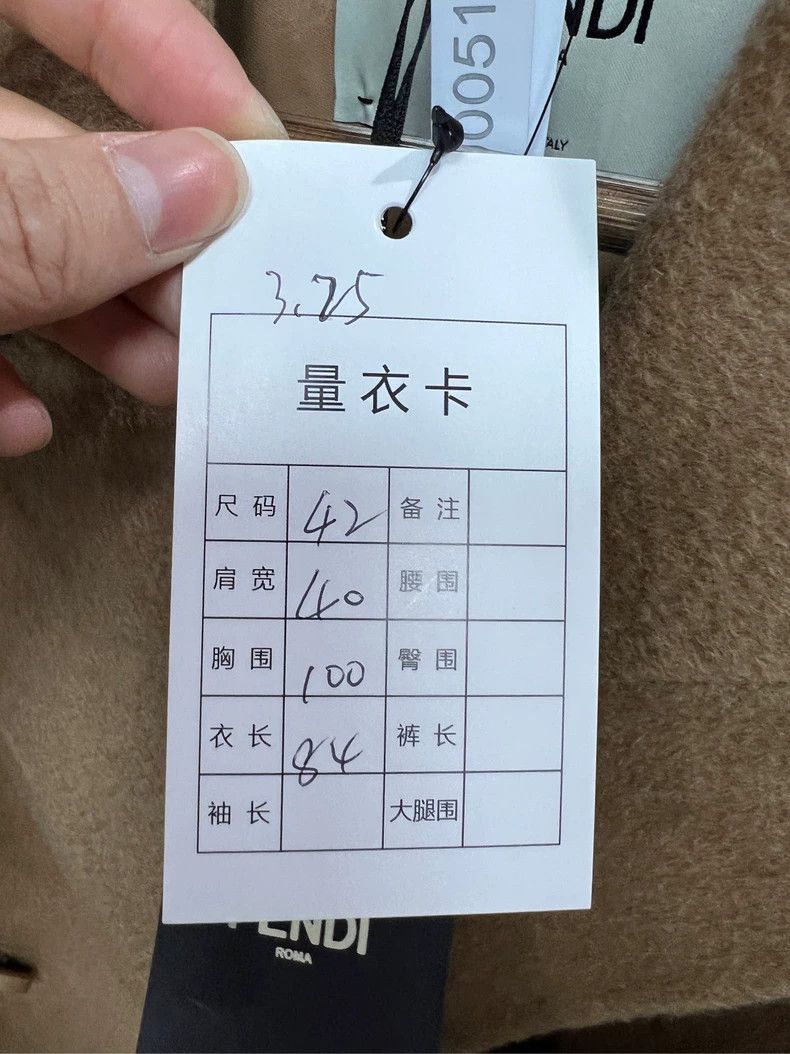 0051
NDI
ALY
3.25
量衣卡
尺码 42 备注
肩宽 40 腰围
胸围 100 臀围
衣长 84 裤长
袖长 大腿围
FENDI
ROMA